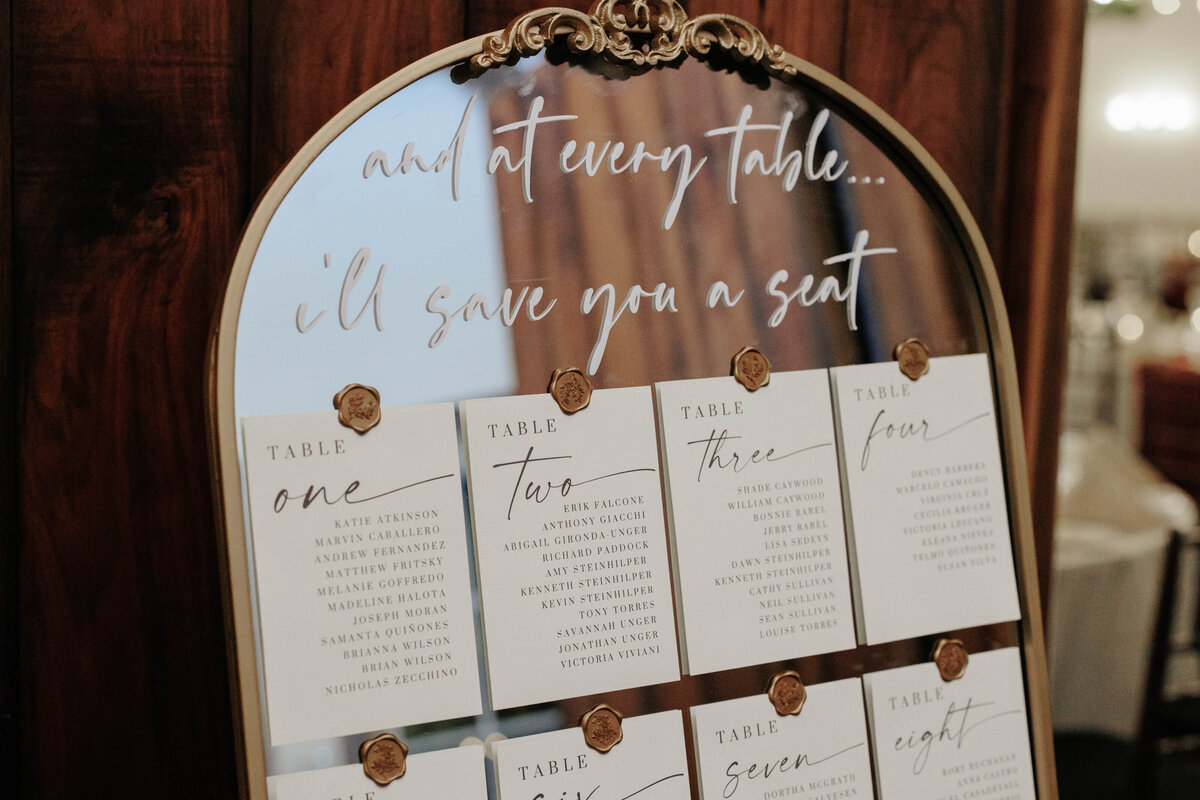 and at every table...
i'll save you a seat
TABLE
one
KATIE ATKINSON
MARVIN CABALLERO
ANDREW FERNANDEZ
MATTHEW FRITSKY
MELANIE GOFFREDO
MADELINE HALOTA
JOSEPH MORAN
SAMANTA QUIÑONES
BRIANNA WILSON
BRIAN WILSON
NICHOLAS ZECCHINO
TABLE
two
ERIK FALCONE
ANTHONY GIACCHI
ABIGAIL GIRONDA UNGER
RICHARD PADDOCK
AMY STEINHILPER
KENNETH STEINHILPER
KEVIN STEINHILPER
TONY TORRES
SAVANNAH UNGER
JONATHAN UNGER
VICTORIA VIVIANI
TABLE
three
SHADE CAYWOOD
WILLIAM CAYWOOD
BONNIE RABEL
JERRY RABEL
LISA SEDEYN
DAWN STEINHILPER
KENNETH STEINHILPER
CATHY SULLIVAN
NEIL SULLIVAN
SEAN SULLIVAN
LOUISE TORRES
TABLE
four
DENCY BARBERA
MARCELO CAMACHO
VIRGINIA CRUZ
CECILIA KRUGER
VICTORIA LESCANO
ELEANA NIEVES
TELMO QUIÑONES
SUSAN SILVA
TABLE
six
TABLE
seven
DORTHA MCGRATH
TABLE
eight
RORY BUCHANAN
ANNA CASTRO
CASADEVALL